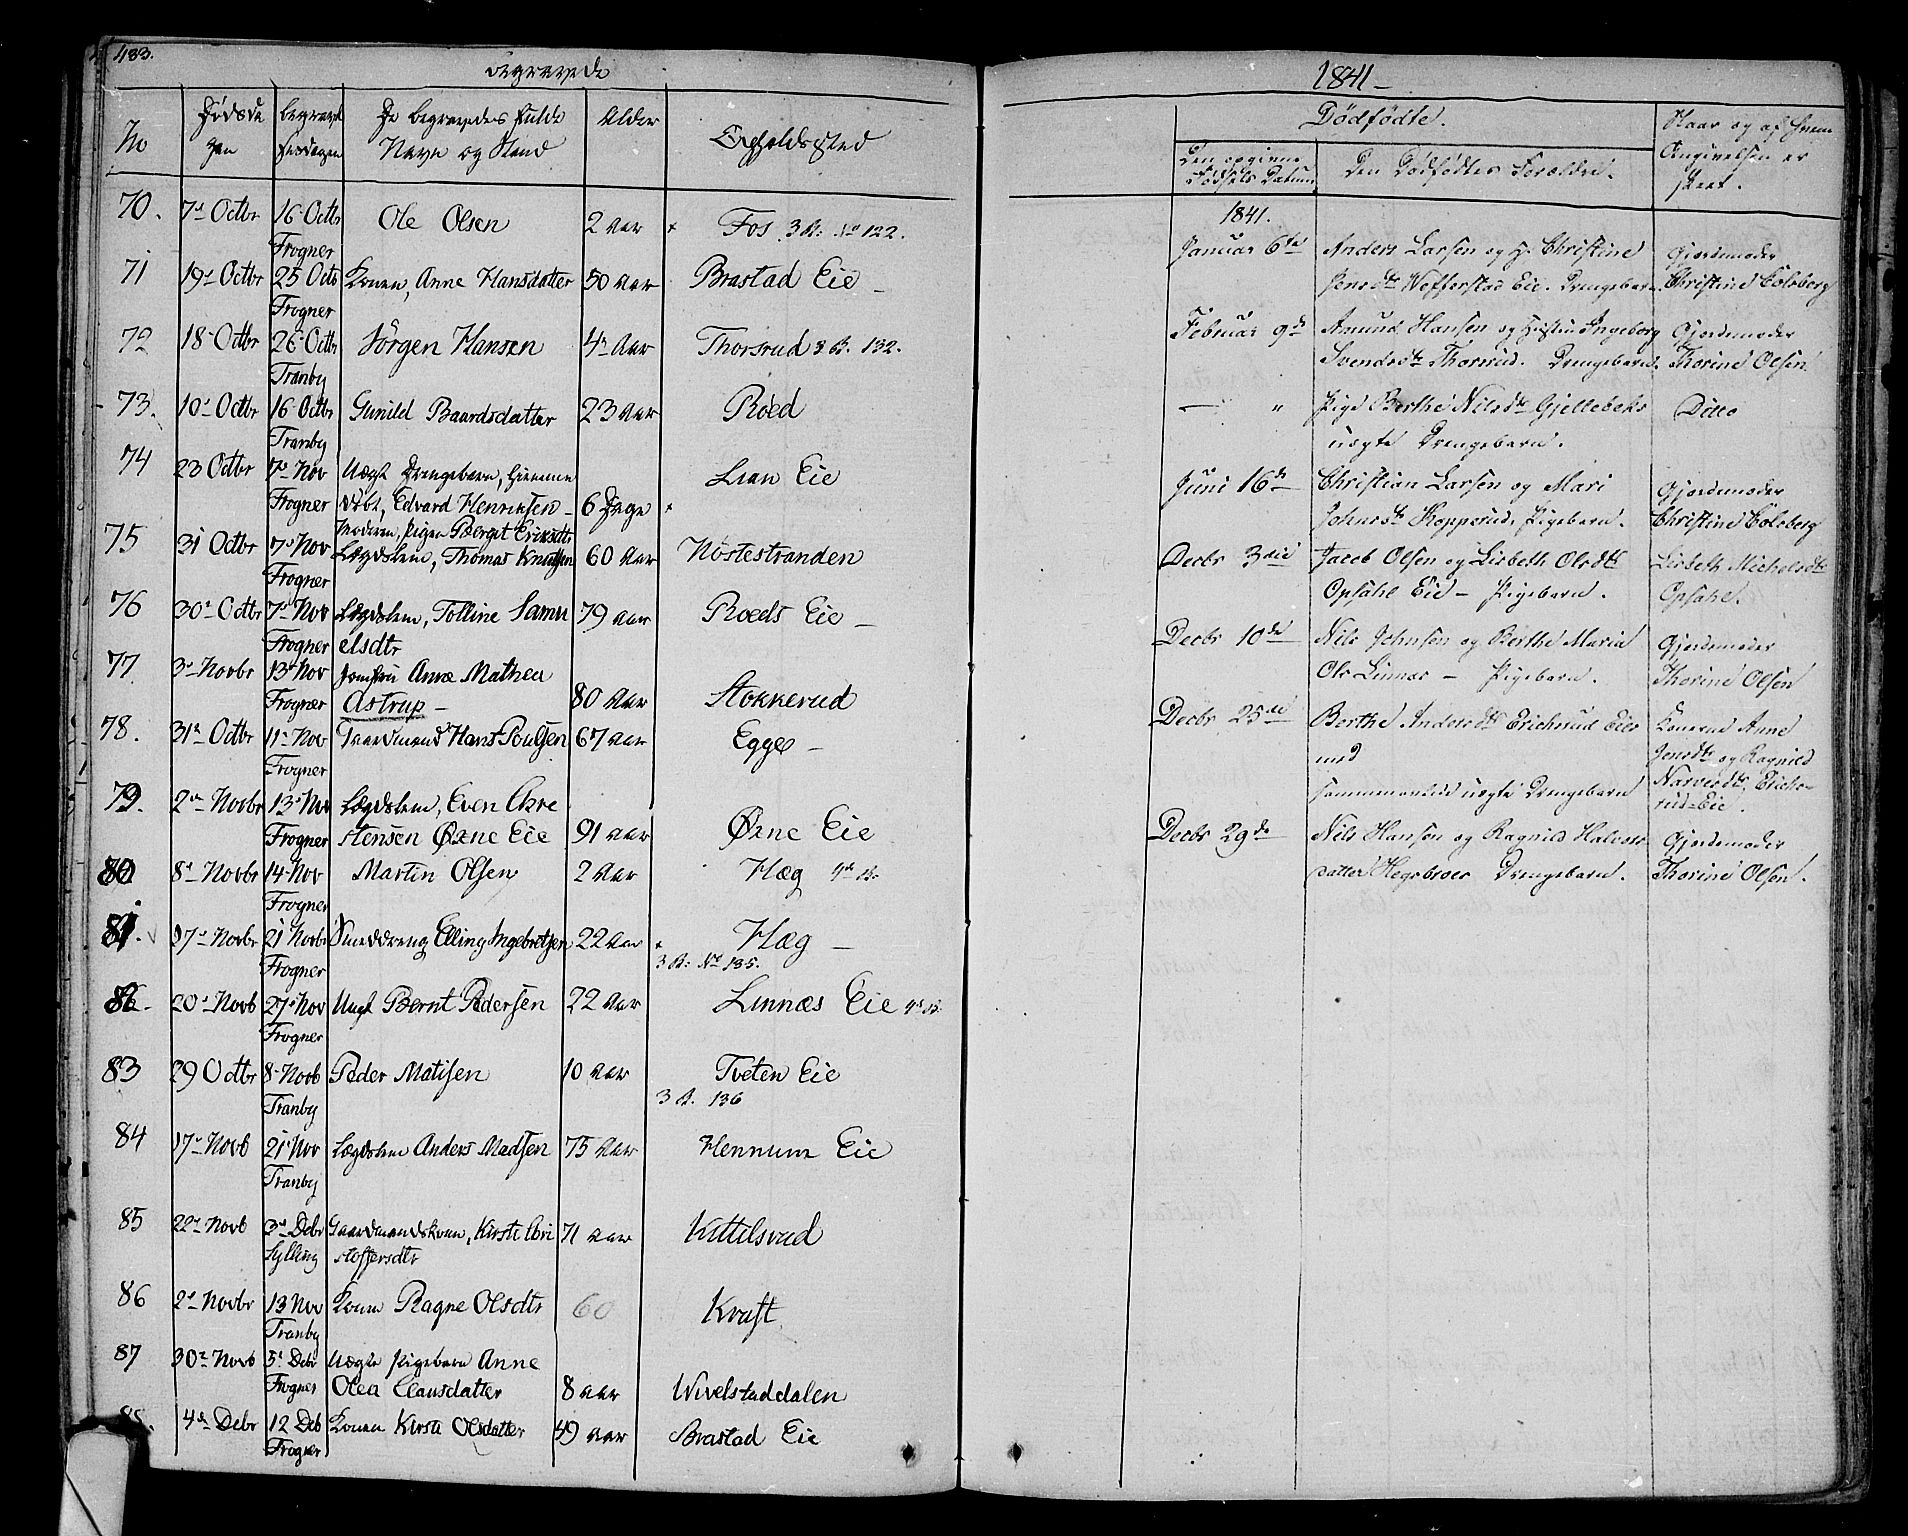 483.
Begravede
No
Dødsda
gen
Begravel
sesdagen
De Begravedes fulde
Navn og Stand
Alder
Opholdssted
70. 7de Octbr 16 Octbr Ole Olsen 2 Aar Fos 3 R: No 122.
Frogner
71 19de Octbr 25 Octb Konen, Anne Hansdatter 50 Aar Brastad Eie
Frogner
72 18 Octbr 26 Octbr Jörgen Hansen 4 Aar Thorsrud 3 R. 132.
Tranby
73. 10de Octbr 16 Octbr Gunild Baardsdatter 23 Aar Röed
Tranby
74 23 Octbr 7de Nov Uægte Drengebarn, hiemme
Frogner døbt, Edvard Henriksen 6 Dage Lian Eie
Moderen, Pigen Berget Eriksdtr
75 31 Octbr 7de Nov Lægdslem, Thomas Knutsen 60 Aar Nöstestranden
Frogner
76 30te Octbr 7de Nov Lægdslem, Tolline Samu 79 Aar Roeds Eie
Frogner elsdtr
77 3de Novbr 13 Nov Jomfru Anne Mathea
Frogner Astrup 80 Aar Stokkerud
78. 31te Octbr 11te Nov Gaardmand Hans Poulsen 67 Aar Egge
Frogner
79. 2den Novbr 13 Nov Lægdslem, Even Chre
Frogner stensen Ørne Eie 91 Aar Ørne Eie
80 8de Novbr 14 Nov Martin Olsen 2 Aar Hæg 4de R.
Frogner
81. 17de Novbr 21 Novbr Smeddreng Elling Ingebretsen 22 Aar Hæg
Frogner 3 R: No 135.
82. 20de Novb 27de Nov Ungk Bernt Pedersen 22 Aar Linnæs Eie 4de R.
Frogner
83 29 Octbr 8 Novb Peder Matisen 10 Aar Tveten Eie
Tranby 3 R. 136
84 17de Novb 21 Nov Lægdslem Anders Madsen 75 Aar Hennum Eie
Tranby
85 22de Novb 3de Debr Gaardmandskonen, Kirsti Chri 71 Aar Kittilsrud
Sylling stoffersdtr
86 2de Novbr 13 Nov Konen Ragne Olsdtr 60 Kraft
Tranby
87 30te Novb 5te Debr Uægte Pigebarn Anne
Frogner Olea Clausdatter 8 Aar Wivelstaddalen
88. 4de Debr 12 Deb Konen Kirsti Olsdatter 49 Aar Brastad Eie
Frogner
1841
Dødfödte.
Den opgivne
Fødsels Datum
Den Dødfødtes Forældre.
Naar og af hvem
Angivelsen er
skeet.
1841.
Januar 6te Anders Larsen og H. Christine Gjordemoder
Jensdtr Wefferstad Eie. Drengebarn. Christine Solberg
Februar 9de Amund Hansen og Hustru Ingeborg Gjordemoder
Svendsdtr Thorsrud. Drengebarn. Thorine Olsen
— " Pige Berthe Nilsdtr Gjellebeks Ditto
uægte Drengebarn.
Juni 16de Christian Larsen og Mari Gjordemoder
Johnsdtr Kopperud, Pigebarn. Christine Solberg
Decbr 3die Jacob Olsen og Lisbeth Olsdtr Lisbeth Michelsdtr
Opsahl Eie — Pigebarn. Opsahl.
Decbr 10de Nils Johnsen og Berthe Maria Gjordemoder
Ols Linnæs — Pigebarn. Thorine Olsen
Decbr 25de Berthe Andersdtr Erichsrud Eies Konerne Anne
med Jensdtr og Ragnild
uægte Drengebarn Narvesdtr, Erichs-
rud Eie.
Decbr 29de Nils Hansen og Ragnild Halvors Gjordemoder
datter Hegsbroes Drengebarn. Thorine Olsen.